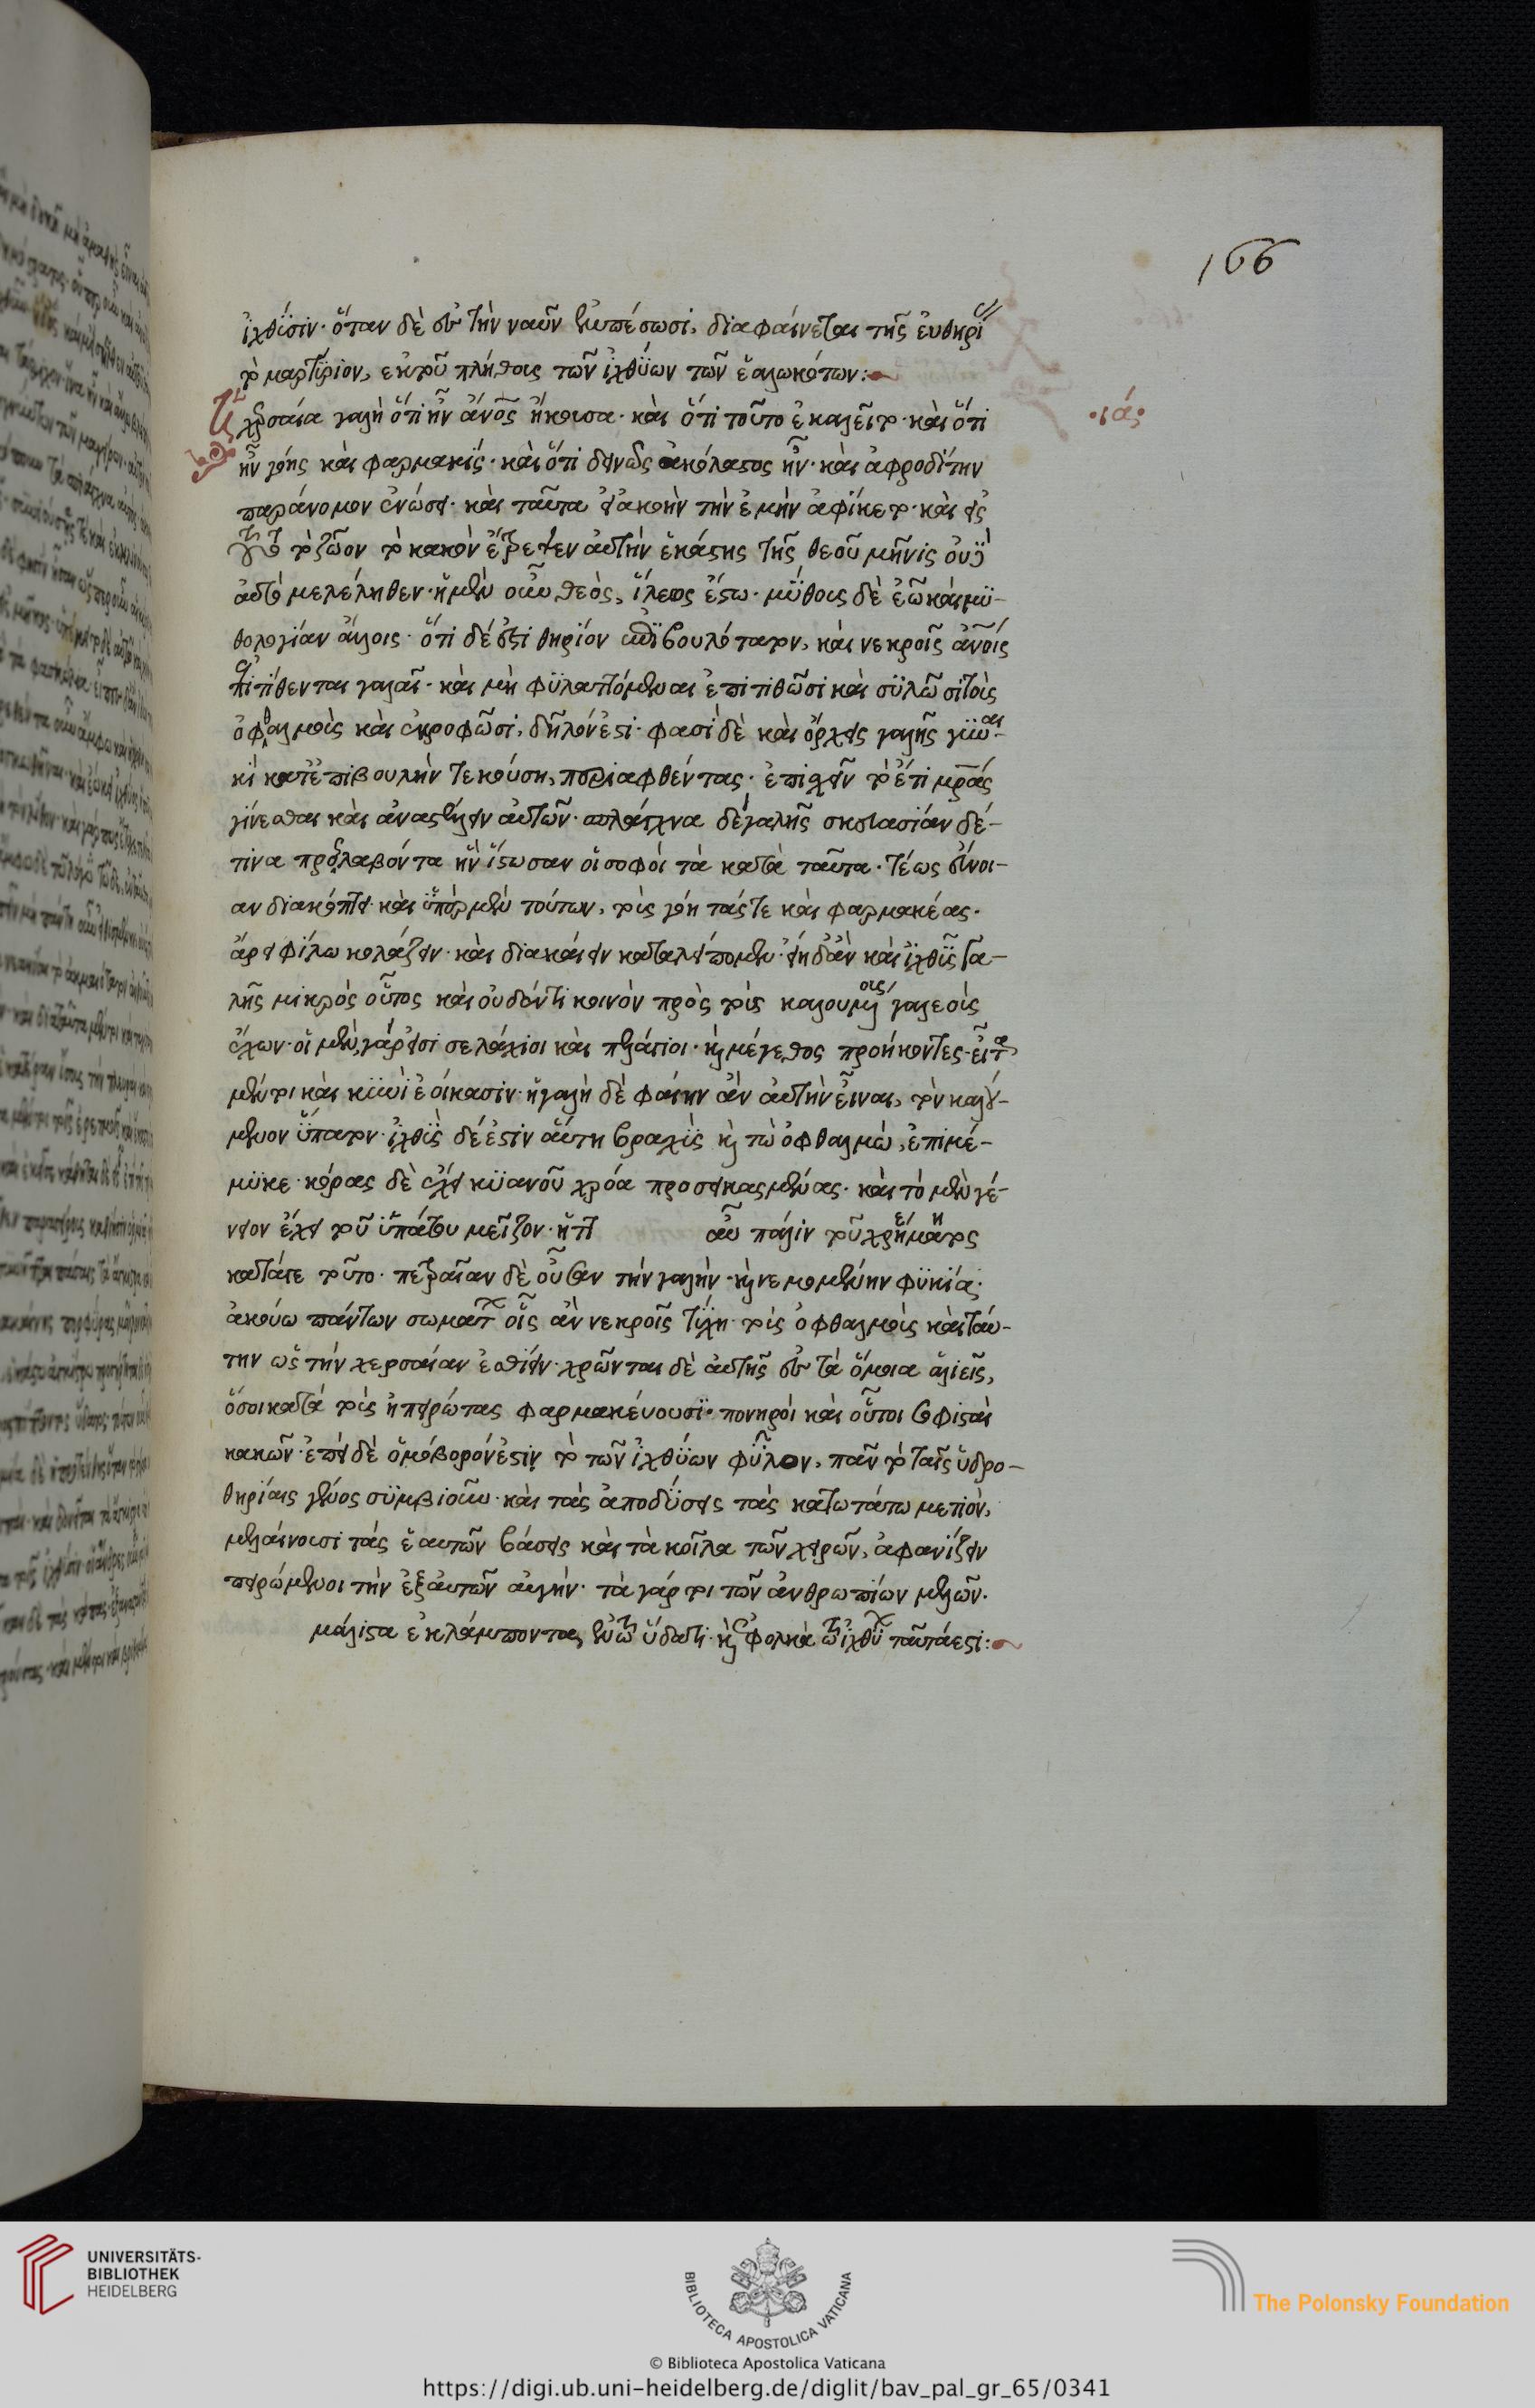 166
ἰχθύσιν· ὅταν δὲ εἰς τὴν ναῦν ἐμπέσωσι, διαφαίνεται τῆς εὐθηρί
τὸ μαρτύριον, ἐκ τοῦ πλήθους τῶν ἰχθύων τῶν ἑαλωκότων:~
·ια·
χερσαία γαλῆ ὅτι ἦν ἄνος ἤκουσα· καὶ ὅτι τοῦτο ἐκαλεῖτο· καὶ ὅτι
ἦν γόης καὶ φαρμακίς· καὶ ὅτι δεινῶς ἀκόλαστος ἦν· καὶ ἀφροδίτην
παράνομον ἐνόσει· καὶ ταῦτα εἰς ἀκοὴν τὴν ἐμὴν ἀφίκετο· καὶ εἰς
τοῦτο τὸ ζῶον τὸ κακὸν ἔτρεψεν αὐτὴν ἑκάτης τῆς θεοῦ μῆνις οὐδὲ
αὐτό με λέληθεν· ἡ μὲν οὖν θεὸς, ἵλεως ἔστω· μύθους δὲ ἐῶ καὶ μυ-
θολογίαν ἄλλοις· ὅτι δέ ἐστι θηρίον ἐπιβουλότατον, καὶ νεκροῖς ἀνοις
ἐπιτίθενται γαλαῖ· καὶ μὴ φυλαττόμεναι ἐπιτιθῶσι καὶ συλῶσι τοὺς
ὀφθαλμοὺς καὶ ἐκροφῶσι, δῆλόν ἐστι· φασὶ δὲ καὶ ὄρχεις γαλῆς γυναι-
κὶ κατ' ἐπιβουλὴν τεκούσῃ, περιαφθέντας· ἐπισχεῖν τὸ ἔτι μρας
γίνεσθαι καὶ ἀναστέλλειν αὐτῶν· σπλάγχνα δὲ γαλῆς σκευασίαν δέ-
τινα προσλαβόντα ἣν ἴστωσαν οἱ σοφοὶ τὰ κατὰ ταῦτα· τέως εὔνοι-
αν διακόπτει· καὶ ὑπὲρ μὲν τούτων, τοὺς γόητάς τε καὶ φαρμακέας·
ἄρει φίλῳ κολάζειν· καὶ διακαίειν καταλείπομεν· εἴη δ' ἂν καὶ ἰχθὺς γα-
λῆς μικρὸς οὗτος καὶ οὐδέν τι κοινὸν πρὸς τοὺς καλουμένους γαλεοὺς
ἔχων· οἱ μὲν γάρ εἰσι σελάχιοι καὶ πελάγιοι· καὶ μέγεθος προήκοντες· εἶτα
μέντοι καὶ κυνὶ ἐοίκασιν· ἡ γαλῆ δὲ φαίην ἂν αὐτὴν εἶναι, τὸν καλού-
μενον ὕπατον· ἰχθὺς δέ ἐστιν αὕτη βραχὺς καὶ τὼ ὀφθαλμὼ, ἐπιμέ-
μυκε· κόρας δὲ ἔχει κυανοῦ χρόα προσεικασμένας· καὶ τὸ μὲν γέ-
νειον ἔχει τοῦ ὑπάτου μεῖζον· ἡττ αὖ πάλιν τοῦ χρέμητος
κατάτε τοῦτο· πετραίαν δὲ οὖσαν τὴν γαλῆν· καὶ νεμομένην φυκία·
ἀκούω πάντων σωμάτων οἷς ἂν νεκροῖς τύχῃ τοὺς ὀφθαλμοὺς καὶ ταύ-
την ὡς τὴν χερσαίαν ἐσθίειν· χρῶνται δὲ αὐτῆς εἰς τὰ ὅμοια ἁλιεῖς,
ὅσοι κατὰ τοὺς ἠπειρώτας φαρμακεύουσι· πονηροὶ καὶ οὗτοι σοφισταὶ
κακῶν· ἐπεὶ δὲ ὠμοβορόν ἐστιν τὸ τῶν ἰχθύων φῦλον, πᾶν τὸ ταῖς ὑδρο-
θηρίαις γένος συμβιοῦν· καὶ τὰς ἀποδύσεις τὰς κατωτάτω μετιὸν,
μελαίνουσι τὰς ἑαυτῶν βάσεις καὶ τὰ κοῖλα τῶν χειρῶν, ἀφανίζειν
πειρώμενοι τὴν ἐξ αὐτῶν αὐγήν· τὰ γάρ τοι τῶν ἀνθρωπίων μελῶν·
μάλιστα ἐκλάμποντα, ἐν τῷ ὕδατι καὶ ἐφολκὰ τῶν ἰχθύων ταῦτά ἐστι:~
UNIVERSITÄTS-
BIBLIOTHEK
HEIDELBERG
BIBLIOTECA APOSTOLICA VATICANA
The Polonsky Foundation
© Biblioteca Apostolica Vaticana
https://digi.ub.uni-heidelberg.de/diglit/bav_pal_gr_65/0341